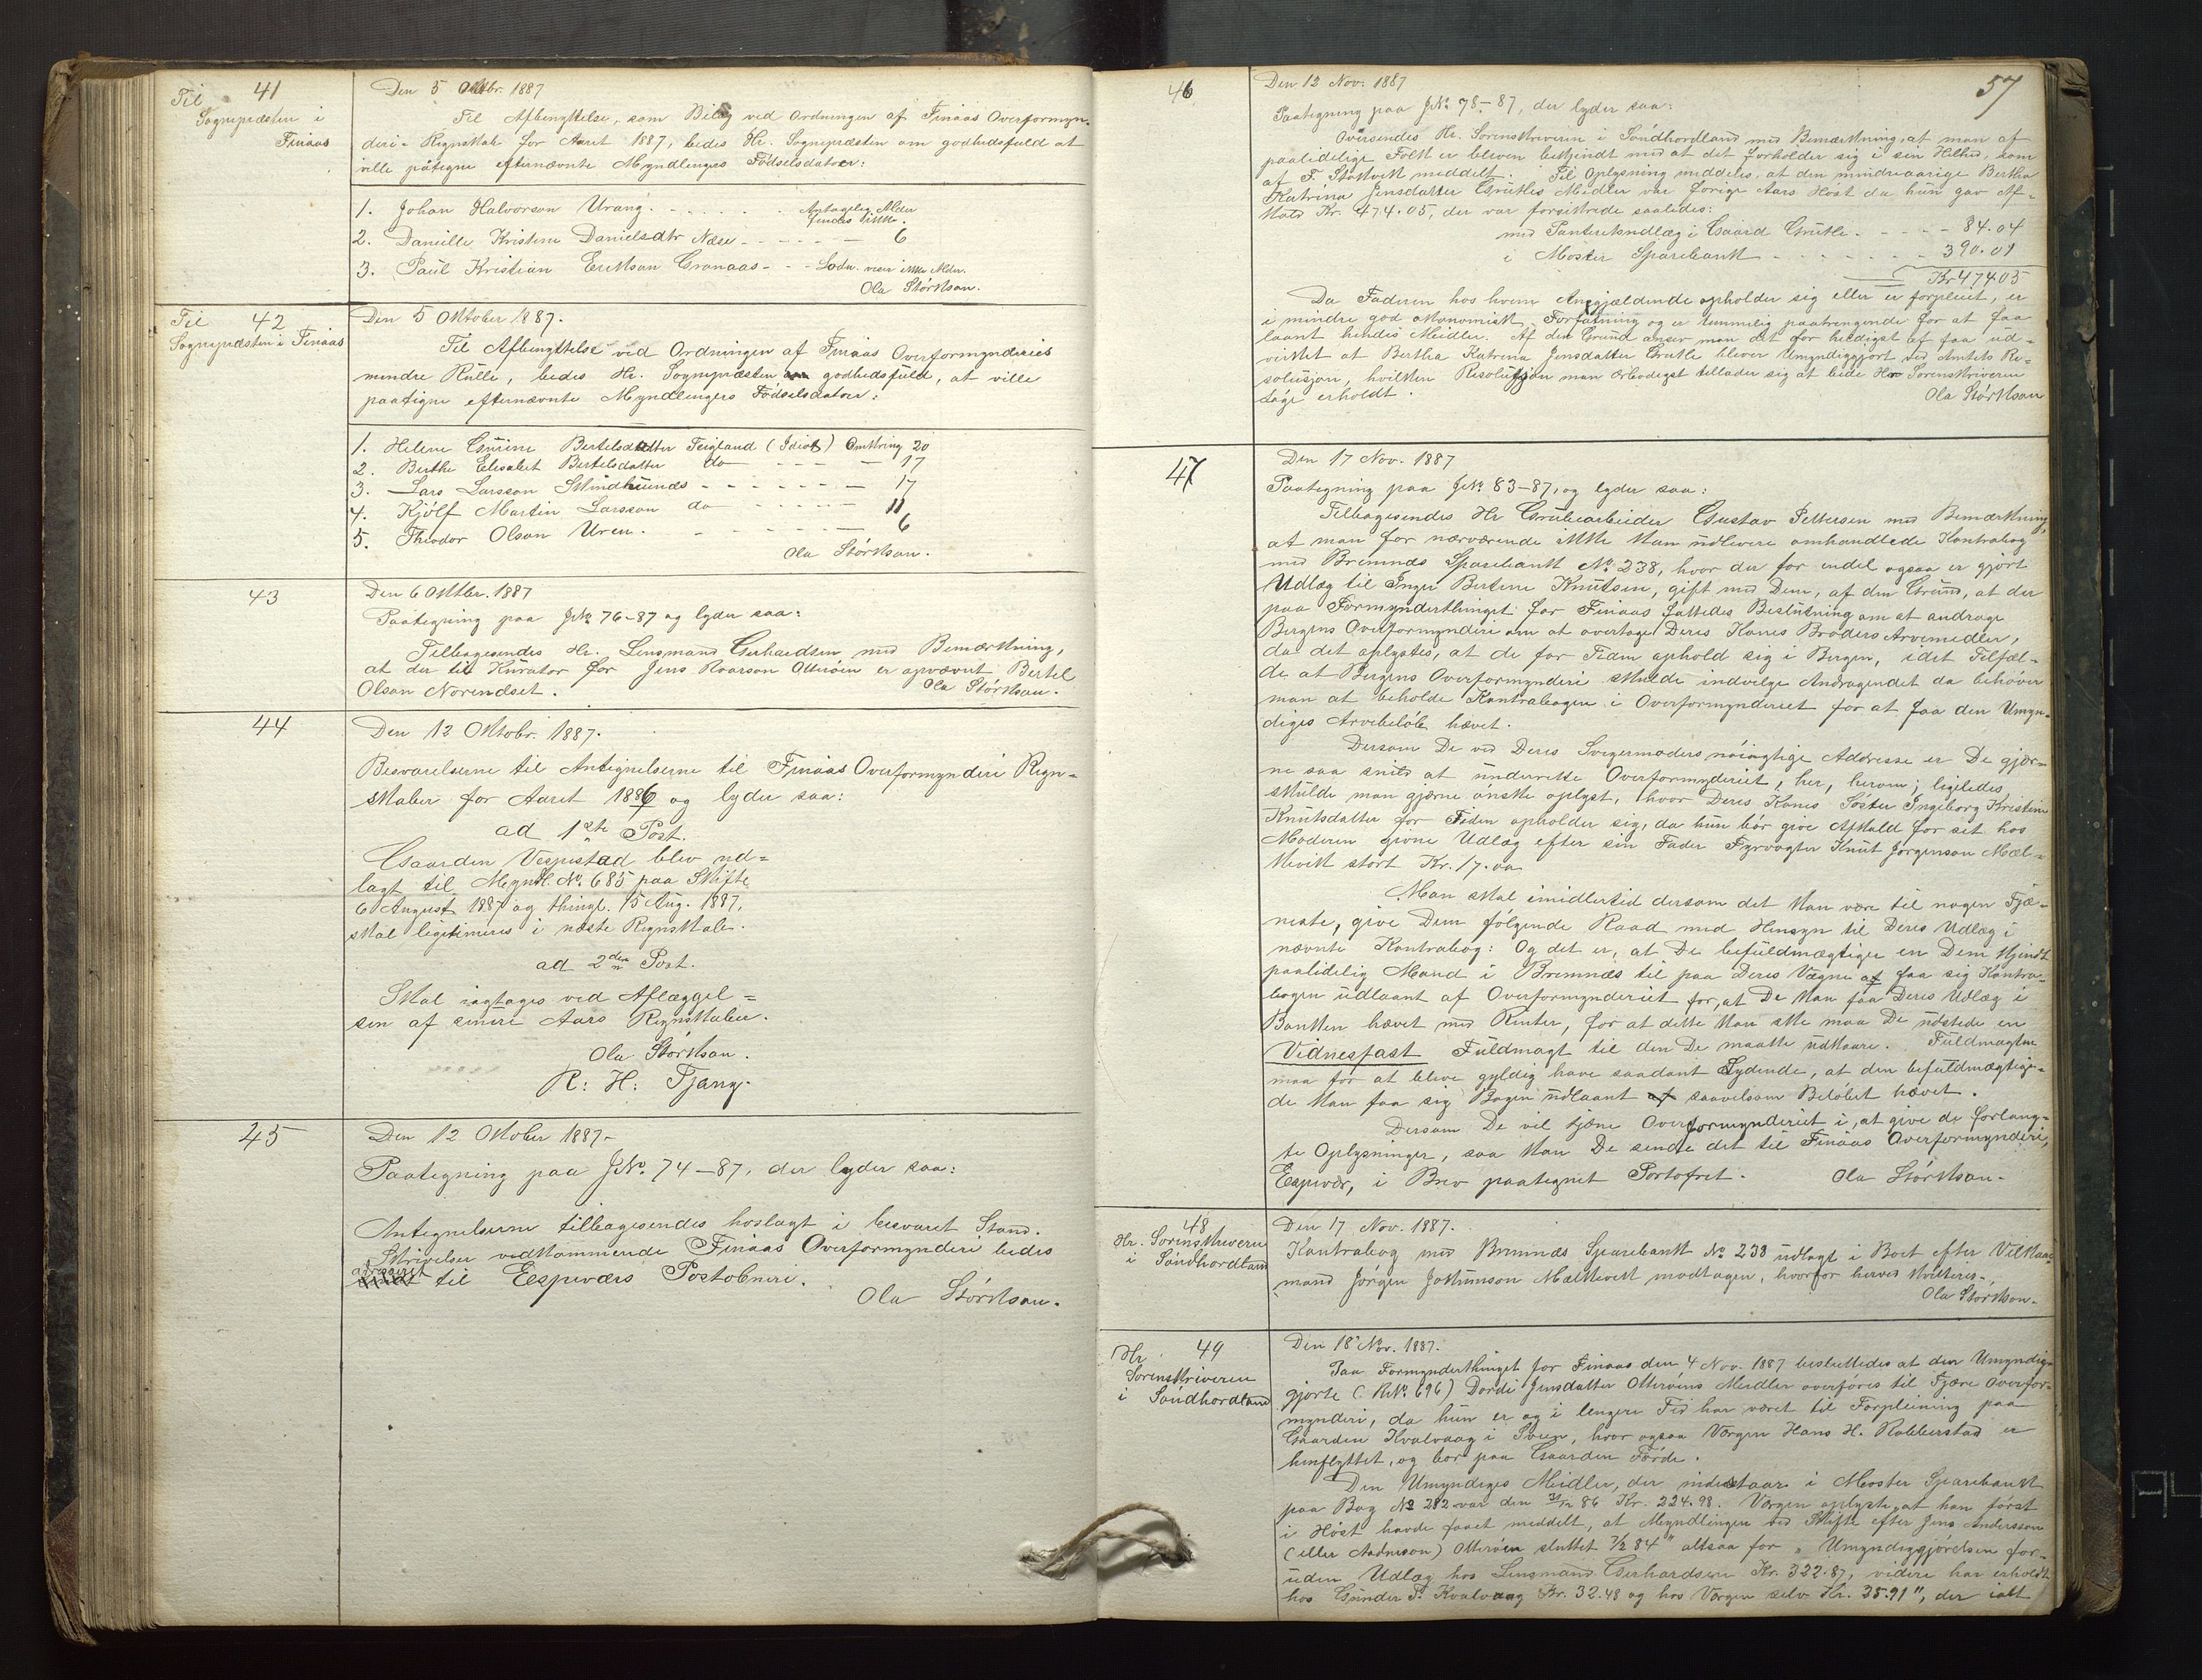 41
Til
Sognepræsten i
Finaas
Den 5 Oktbr. 1887
Til Afbenyttelse, som Bilag ved Ordningen af Finaas Overformyn-
deri-Regnskab for Aaret 1887, bedes Hr. Sognepræsten om godhedsfuld at
ville påtegne efternævnte Myndlinges Födselsdatoer:
1. Johan Halvorson Urang. - - - - - Antagelig Alder
findes ikke.
2. Danielle Kristine Danielsdtr Næse - - - - - 6
3. Paul Kristian Erikson Granaas - - - Lodn. viser ikke Alder.
Ola Störkson.
Til 42
Sognepræsten i Finaas
Den 5 Oktober 1887.
Til Afbenyttelse ved Ordningen af Finaas Overformynderies
mindre Rulle, bedes Hr. Sognepræsten godhedsfuld, at ville
paategne efternævnte Myndlingers Födselsdatoer:
1. Helene Gurine Bertelsdatter Teigland (Idiot) Omkring 20
2. Berthe Elisabet Bertelsdatter do - - - - 17
3. Lars Larsson - - - - - - 17
4. Kjölf Martin Larsson do - - - - 11
5. Theodor Olson Uren. - - - - 6
Ola Störkson.
43
Den 6 Oktbr. 1887
Paategning paa JNo 76-87 og lyder saa:
Tilbagesendes Hr. Lensmand Gerhardsen med Bemærkning,
at der til Kurator for Jens Roarson Otteröen er opnævnt Bertel
Olson Norendset. Ola Störkson.
44
Den 12 Oktobr. 1887.
Besvarelserne til Antegnelserne til Finaas Overformynderi Regn-
skaber for Aaret 1886 og lyder saa:
ad 1ste Post.
Gaarden Vespestad blev ud=
lagt til Myndl. No. 685 paa Skifte
6 August 1887 og thingl. 15 Aug. 1887,
skal legitimeres i næste Regnskab.
ad 2den Post.
Skal iagtages ved Aflæggel=
sen af senere Aars Regnskaber.
Ola Störkson.
R: H: Tjang.
45
Den 12 Oktober 1887-
Paategning paa JNo. 74-87, der lyder saa:
Antegnelserne tilbagesendes hoslagt i besvaret Stand.
Skrivelser vedkommende Finaas Overformynderi bedes
adresseret til Espeværs Postobneri.
Ola Störkson.
57
46
Den 12 Nov. 1887
Paategning paa JNo. 78-87, der lyder saa:
Oversendes Hr. Sorenskriveren i Söndhordland med Bemærkning, at man af
paalidelige Folk er bleven bekjendt med at det forholder sig i sin Helhed, som
af F. Stokvik meddelt. Til Oplysning meddeles, at den mindreaarige Bertha
Katrina Jensdatter Grutles Midler var forige Aars Höst da hun gav Af-
kald Kr. 474.05, der var forsikrede saaledes:
med Panteretsudlæg i Gaard Grutle. - - - - 84.04
i Moster Sparebank - - - - - - 390.01
Kr 474.05
Da Faderen hos hvem Angjældende opholder sig eller er forpleiet, er
i mindre god økonomisk Forfatning og er temmelig paatrengende for at faa
laant hendes Meidler. Af den Grund anser man det for heldigst at faa ud-
virket at Bertha Katrina Jensdatter Grutle bliver umyndiggjort ved Amtets Re-
solusjon, hvilken Resolusjon man ærbodigst tillader sig at bede Hr Sorenskriveren
tage erholdt. Ola Störkson
47
Den 17 Nov. 1887
Paategning paa JNo. 83-87, og lyder saa:
Tilbagesendes Hr Grubearbeider Gustav Pettersen med Bemærkning,
at man for nærværende ikke kan udlevere omhandlede Kontrabog
med Bremnæs Sparebank No. 238, hvor der for endel ogsaa er gjort
Udlæg til Inger Bertine Knutsen, gift med Dem, af den Grund, at der
paa Formynderthinget for Finaas fattedes Beslutning om at andrage
Bergens Overformynderi om at overtage Deres Kones Bröders Arvemidler,
da det oplystes, at de for Tiden ophold sig i Bergen, i det Tilfæl-
de at Bergens Overformynderi skulde indvilge Andragendet da behöver
man at beholde Kontrabogen i Overformynderiet for at faa den Umyn-
diges Arvebelöb hævet.
Dersom De ved Deres Svigermoders nöiagtige Addresse er De gjær-
ne saa snild at underrette Overformyderiet, her, herom; ligeledes
skulde man gjærne önske oplyst, hvor Deres Kones Söster Ingeborg Kristine
Knutsdatter for Tiden opholder sig, da hun bör give Afkald for sit hos
Moderen givne Udlæg efter sin Fader Fyrvogter Knut Jørgenson Mæl-
kevik stort Kr. 17.00
Man skal imidlertid dersom det kan være til nogen Tjæ-
neste, give Dem fölgende Raad med Hensyn til Deres Udlæg i
nævnte Kontrabog: Og det er, at De befuldmægtiger en Dem kjendt
paalidelig Mand i Bremnæs til paa Deres Vegne at faa sig Kontra-
bogen udlaant af Overformynderiet for, at De kan faa Deres Udlæg i
Banken hævet med Renter, for at dette kan ske maa De udstede en
Vidnesfast Fuldmagt til den De maatte udkaare. Fuldmagten
maa for at blive gyldig have saadant Lydende, at den befuldmægtige-
de kan faa sig Bogen udlaant saavelsom Belöbet hævet.
Dersom De vil tjene Overformynderiet i, at give de forlang-
te Oplysninger, saa kan De sende det til Finaas Overformynderi,
Espevær, i Brev paategnet Portofrit. Ola Störkson-
48
Hr. Sorenskriveren
i Söndhordland
Den 17 Nov. 1887.
Kontrabog med Bremnæs Sparebank No 238 udlagt i Boet efter Vilkaar-
mand Jörgen Mælkevik modtagen, hvorfor herved kvitteres-
Ola Störkson-
49
Hr.
Sorenskriveren
i Söndhordland
Den 18 Nov. 1887.
Paa Formynderthinget for Finaas den 4 Nov. 1887 besluttedes at den Umyndig-
gjorte (RNo. 696) Dordi Jensdatter Otteröens Meidler overföres til Fjære Overfor-
mynderi, da hun er og i lengere Tid har været til Forpleining paa
Gaarden Kvalvaag i Sveen, hvor ogsaa Værgen Hans H. Robberstad er
henflyttet, og bor paa Gaarden Förde.
Den Umyndiges Meidler, der indestaar i Moster Sparebank
paa Bog No 212 var den 31/12 86 Kr. 224.98. Værgen oplyste, at han först
i Höst havde faaet meddelt, at Myndlingen ved Skifte efter Jens Andersson
(eller Aadneson) Otteröen sluttet 7/2 84" altsaa för Umyndiggjörelsen for-
uden Udlæg hos Lensmand Gerhardsen Kr. 322.87, videre har erholdt
hos Gunder P. Kvalvaag Kr. 32.48 og hos Værgen selv Kr. 35.91", der ialt